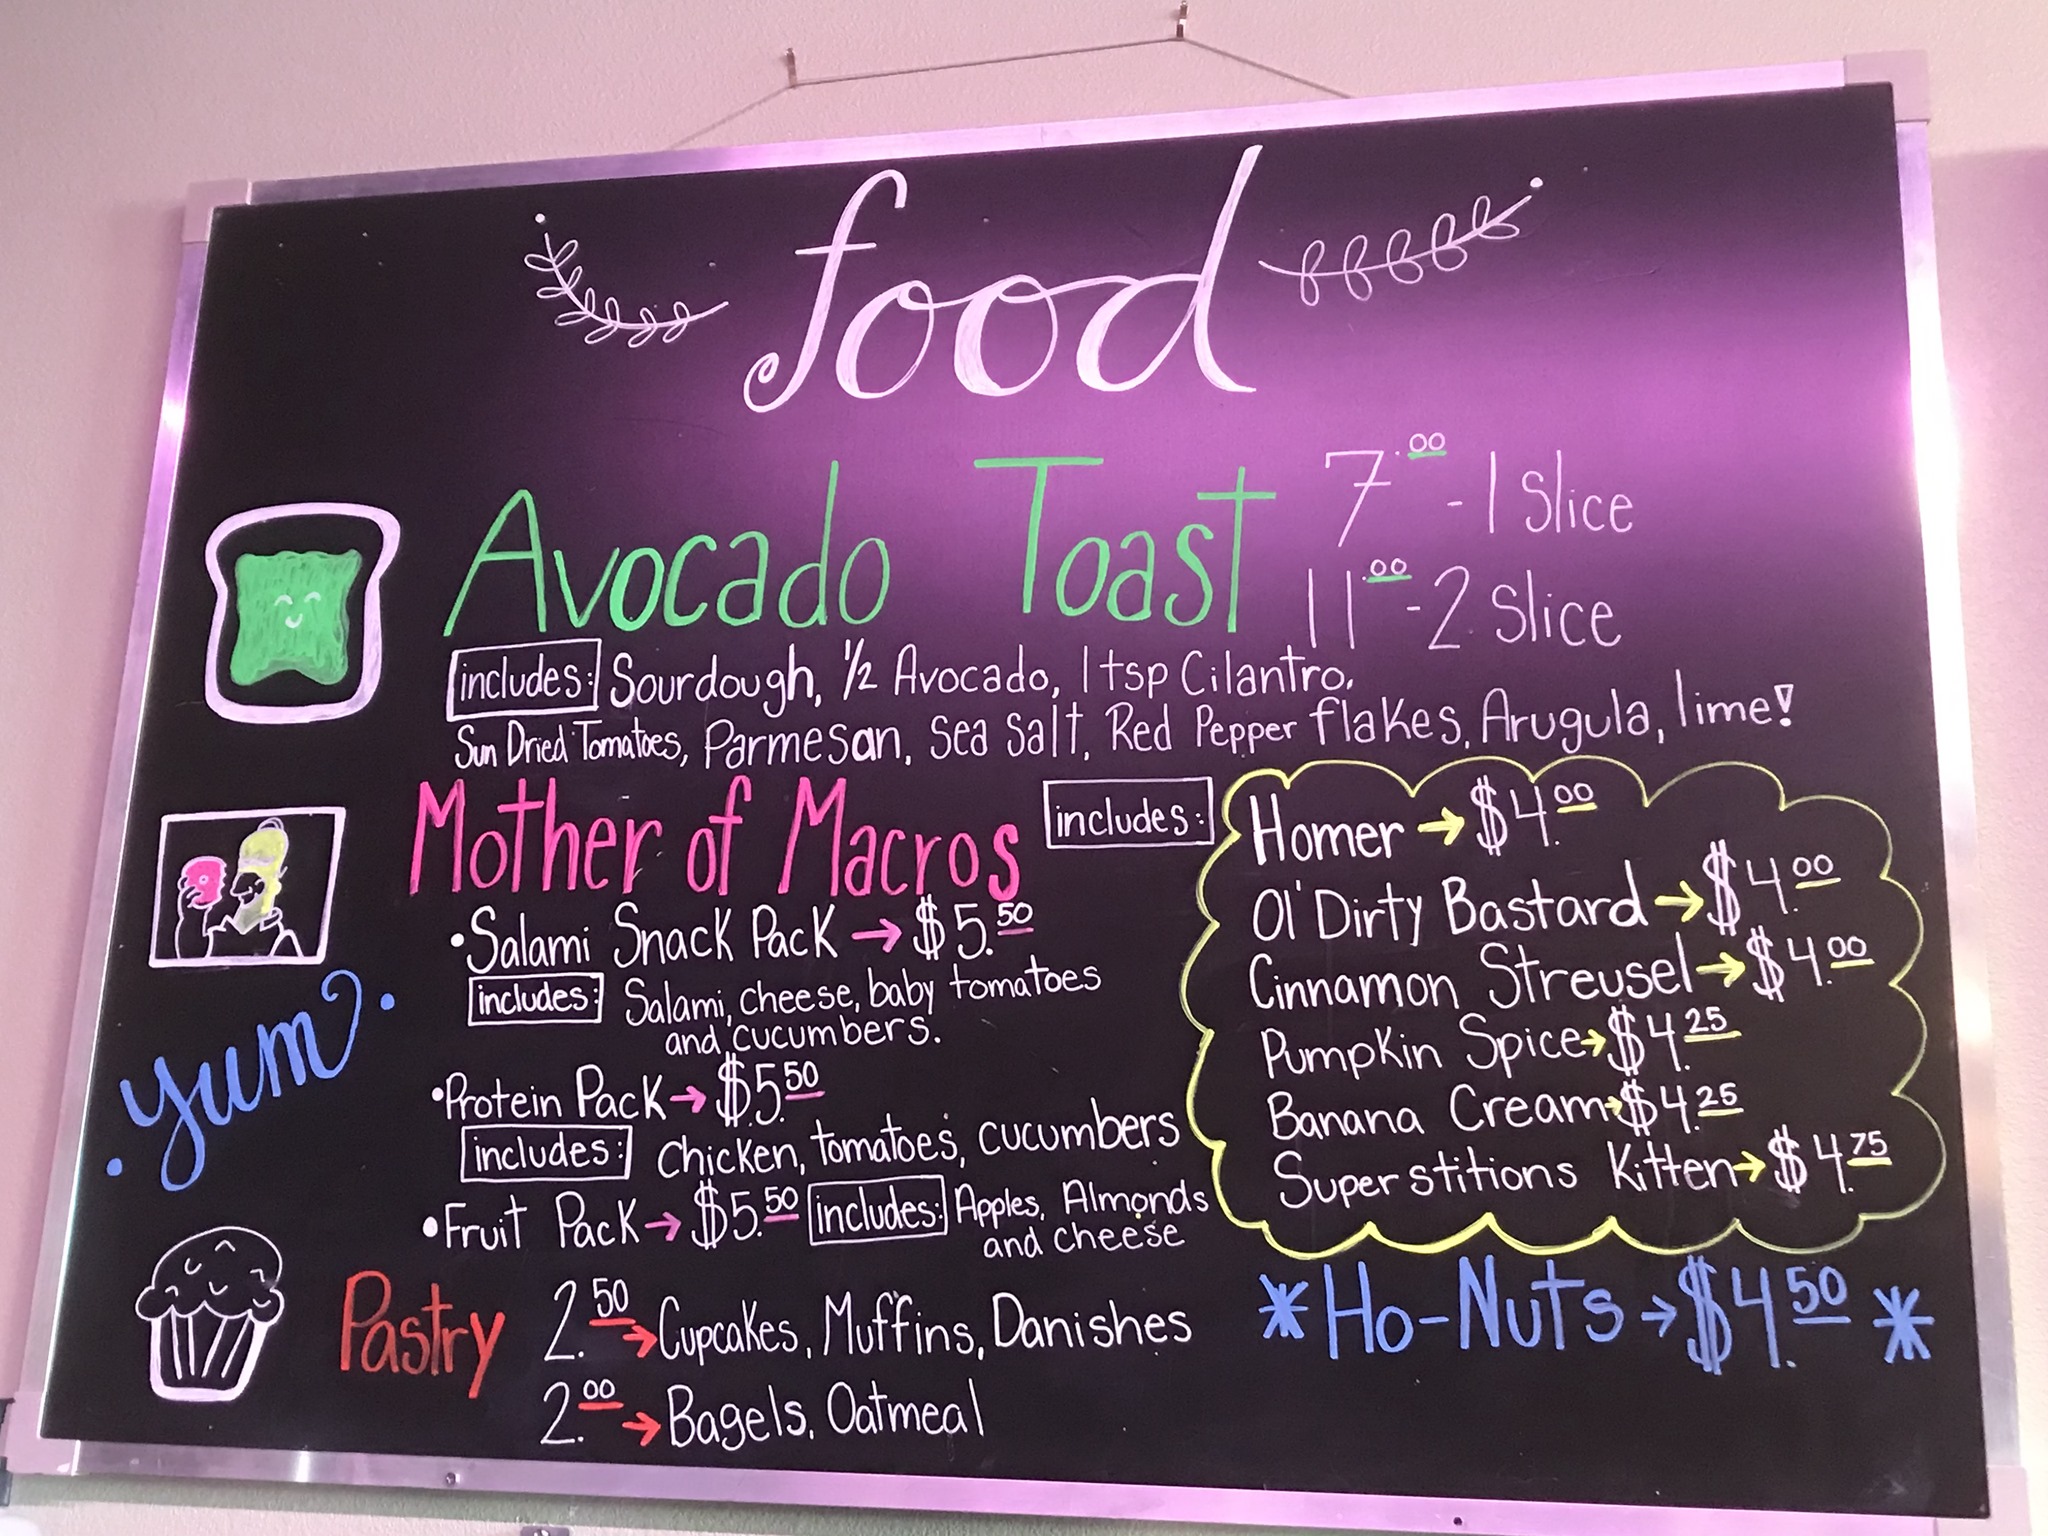 food
Avocado Toast
7.00 - 1 Slice
11.00 - 2 Slice
includes: Sourdough, 1/2 Avocado, 1 tsp Cilantro,
Sun Dried Tomatoes, Parmesan, Sea Salt, Red Pepper flakes, Arugula, lime!
Mother of Macros
includes:
• Salami Snack Pack → $5.50
includes: Salami, cheese, baby tomatoes
and cucumbers.
• Protein Pack → $5.50
includes: Chicken, tomatoes, cucumbers
• Fruit Pack → $5.50 includes: Apples, Almonds
and cheese
Homer → $4.00
Ol' Dirty Bastard → $4.00
Cinnamon Streusel → $4.00
Pumpkin Spice → $4.25
Banana Cream → $4.25
Superstitions Kitten → $4.75
* Ho-Nuts → $4.50 *
yum
Pastry
2.50 → Cupcakes, Muffins, Danishes
2.00 → Bagels, Oatmeal